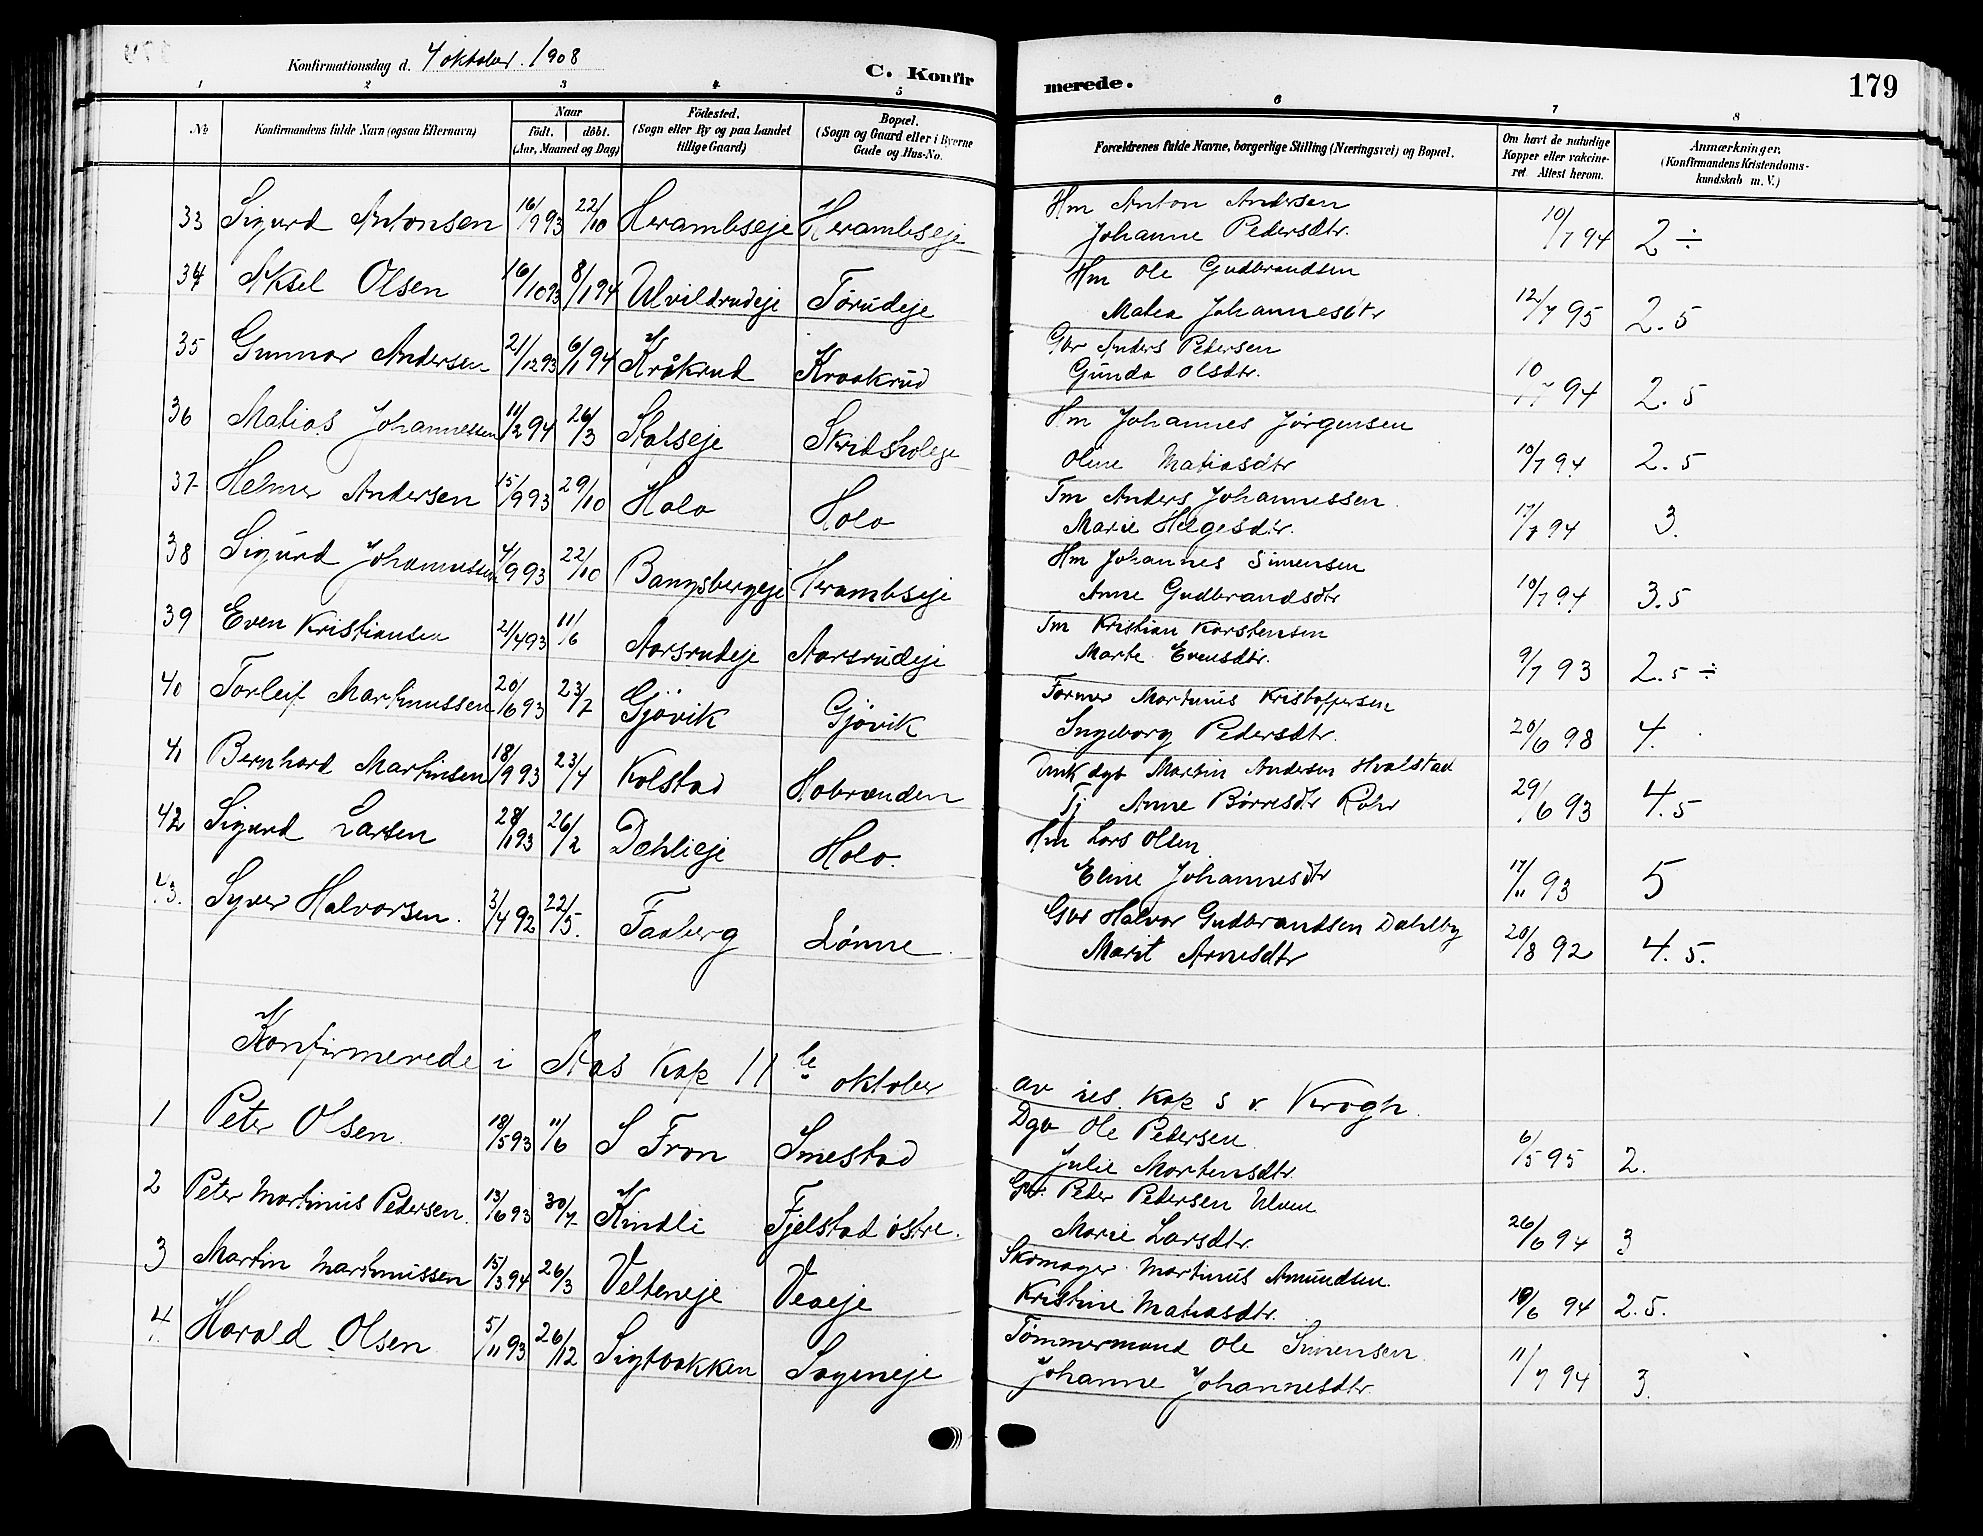 Konfirmationsdag d. 4 oktober 1908
C. Konfirmerede.
179
1 2 3 4 5 6 7 8
№
Konfirmandens fulde Navn (ogsaa Efternavn)
Naar
födt. döbt.
(Aar, Maaned og Dag)
Födested.
(Sogn eller By og paa Landet tillige Gaard)
Bopæl.
(Sogn og Gaard eller i Byerne Gade og Hus-No.
Forældrenes fulde Navne, borgerlige Stilling (Næringsvei) og Bopæl.
Om havt de naturlige Kopper eller vakcineret Attest herom.
Anmærkninger.
(Konfirmandens Kristendomskundskab m. V.)
33 Sigurd Antonsen 16/9 93 22/10 Herambseje Herambseje Hm Anton Andersen
Johanne Pedersdtr. 10/7 94 2 ÷
34 Aksel Olsen 16/10 93 8/1 94 Ulvildrudeje Törudeje Hm Ole Gudbrandsen
Matea Johannesdtr 12/7 95 2.5
35 Gunnar Andersen 21/12 93 6/1 94 Kråkrud Kraakrud Gbr Anders Pedersen
Gunda Olsdtr. 10/7 94 2.5
36 Matias Johannessen 11/2 94 26/3 Stalseje Skridsholeje Hm Johannes Jörgensen
Oline Matiasdtr 10/7 94 2.5
37 Helmer Andersen 15/9 93 29/10 Holo Holo Tm Anders Johannessen
Marie Helgesdtr. 17/7 94 3.
38 Sigurd Johannessen 4/9 93 22/10 Bangsbergeje Herambseje Hm Johannes Simensen
Anne Gudbrandsdtr 10/7 94 3.5
39 Even Kristiansen 21/4 93 11/6 Aarsrudeje Aarsrudeje Tm Kristian Karstensen
Marte Evensdtr. 9/7 93 2.5 ÷
40 Torleif Martinussen 20/6 93 23/7 Gjövik Gjövik Former Martinus Kristoffersen
Ingeborg Pedersdtr. 20/6 98 4.
41 Bernhard Martinsen 18/9 93 23/4 Kolstad Hobrænden Unk dgb Martin Andersen Hvalstad
Tj Anne Börresdtr Rohr 29/6 93 4.5
42 Sigurd Larsen 28/1 93 26/2 Dehlieje Holo. Hm Lars Olsen
Eline Johannesdtr 17/11 93 5
43. Syver Halvorsen. 3/4 92 22/5. Faaberg Lönne Gbr Halvor Gudbrandsen Dahlby
Marit Arnesdtr 20/8 92 4.5.
Konfirmerede i Aas Kap 11te oktober av res. kap S v. Krogh.
1 Peter Olsen. 18/5 93 11/6 S Fron Smestad Dgb Ole Pedersen
Julie Mortensdtr. 6/5 95 2.
2 Peter Martinus Pedersen. 13/6 93 30/7 Kindli Fjelstad östre. Gbr. Peder Pedersen Ulven
Marie Larsdtr. 26/6 94 3
3 Martin Martinussen 15/3 94 26/3 Velteneje Veaeje Skomager Martinus Amundsen.
Kristine Matiasdtr. 19/6 94 2.5.
4. Harald Olsen 5/11 93 26/12 Sigtbakken Sageneje Tömmermand Ole Simensen
Johanne Johannesdtr. 11/7 94 3.